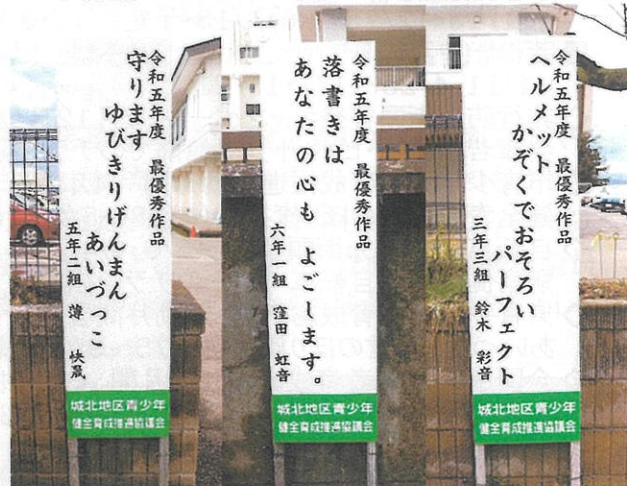 令和五年度 最優秀作品
ヘルメット
かぞくでおそろい
パーフェクト
三年三組 鈴木 彩音
城北地区青少年
健全育成推進協議会
令和五年度 最優秀作品
落書きは
あなたの心も よごします。
六年一組 窪田 虹音
城北地区青少年
健全育成推進協議会
令和五年度 最優秀作品
守ります
ゆびきりげんまん
あいづっこ
五年二組 薄 快晟
城北地区青少年
健全育成推進協議会